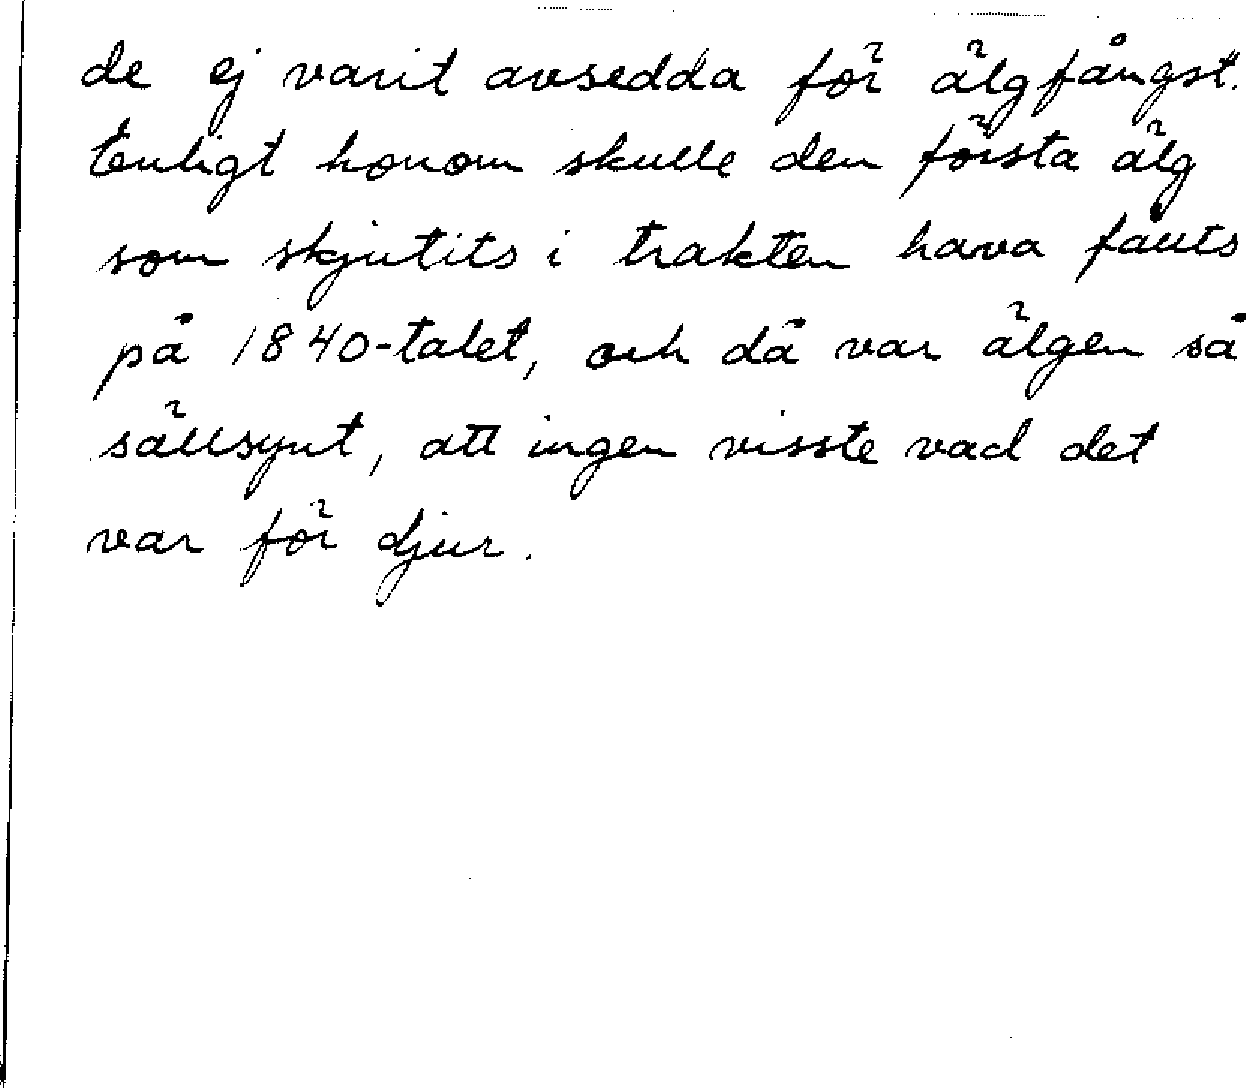 de ej varit avsedda för älgfångst.
Enligt honom skulle den första älg
som skjutits i trakten hava fåtts
på 1840-talet, och då var älgen så
sällsynt, att ingen visste vad det
var för djur.